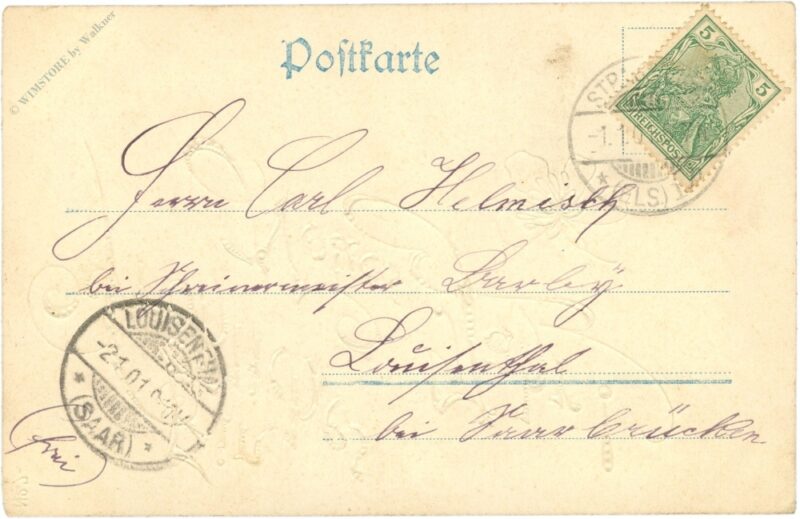 © WIMSTORE by Walkner
Postkarte
5
5
REICHSPOST
STRA
-1.1.0
* (ELS.) 1
Herrn Carl Helmisch
bei Schreinermeister Darby
Louisenthal
bei Saarbrücken
LOUISENTHAL
-2.1.01
* (SAAR) *
frei